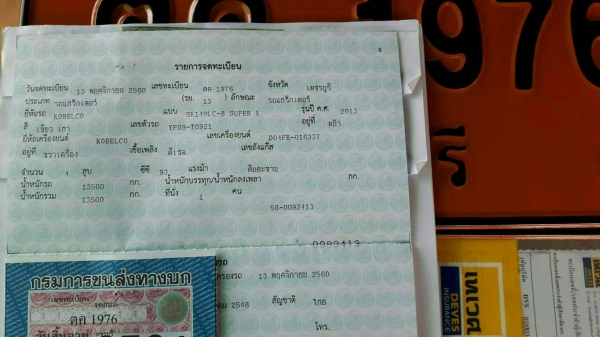 ตค 1976
4
รายการจดทะเบียน
วันจดทะเบียน 13 พฤศจิกายน 2560 เลขทะเบียน ตค 1976 จังหวัด เพชรบุรี
ประเภท รถแทร็กเตอร์ (รย. 13) ลักษณะ รถแทร็กเตอร์
ยี่ห้อรถ KOBELCO แบบ SK140LC-8 SUPER X รุ่นปี ค.ศ. 2013
สี เขียว เทา เลขตัวรถ YP09-T0921 อยู่ที่
ยี่ห้อเครื่องยนต์ KOBELCO เลขเครื่องยนต์ D04FR-016337
อยู่ที่ ขวาเครื่อง เชื้อเพลิง ดีเซล เลขถังแก๊ส
จำนวน 4 สูบ ซีซี 93 แรงม้า
น้ำหนักรถ 13500 กก. น้ำหนักบรรทุก/น้ำหนักลงเพลา กก.
น้ำหนักรวม 13500 กก. ที่นั่ง 1 คน
58-0092413
0092413
13 พฤศจิกายน 2560
2548 สัญชาติ ไทย
โทร.
กรมการขนส่งทางบก
เลขทะเบียน
ตค 1976
วันสิ้นอายุ
เทเวศ
DEVES
INSURANCE